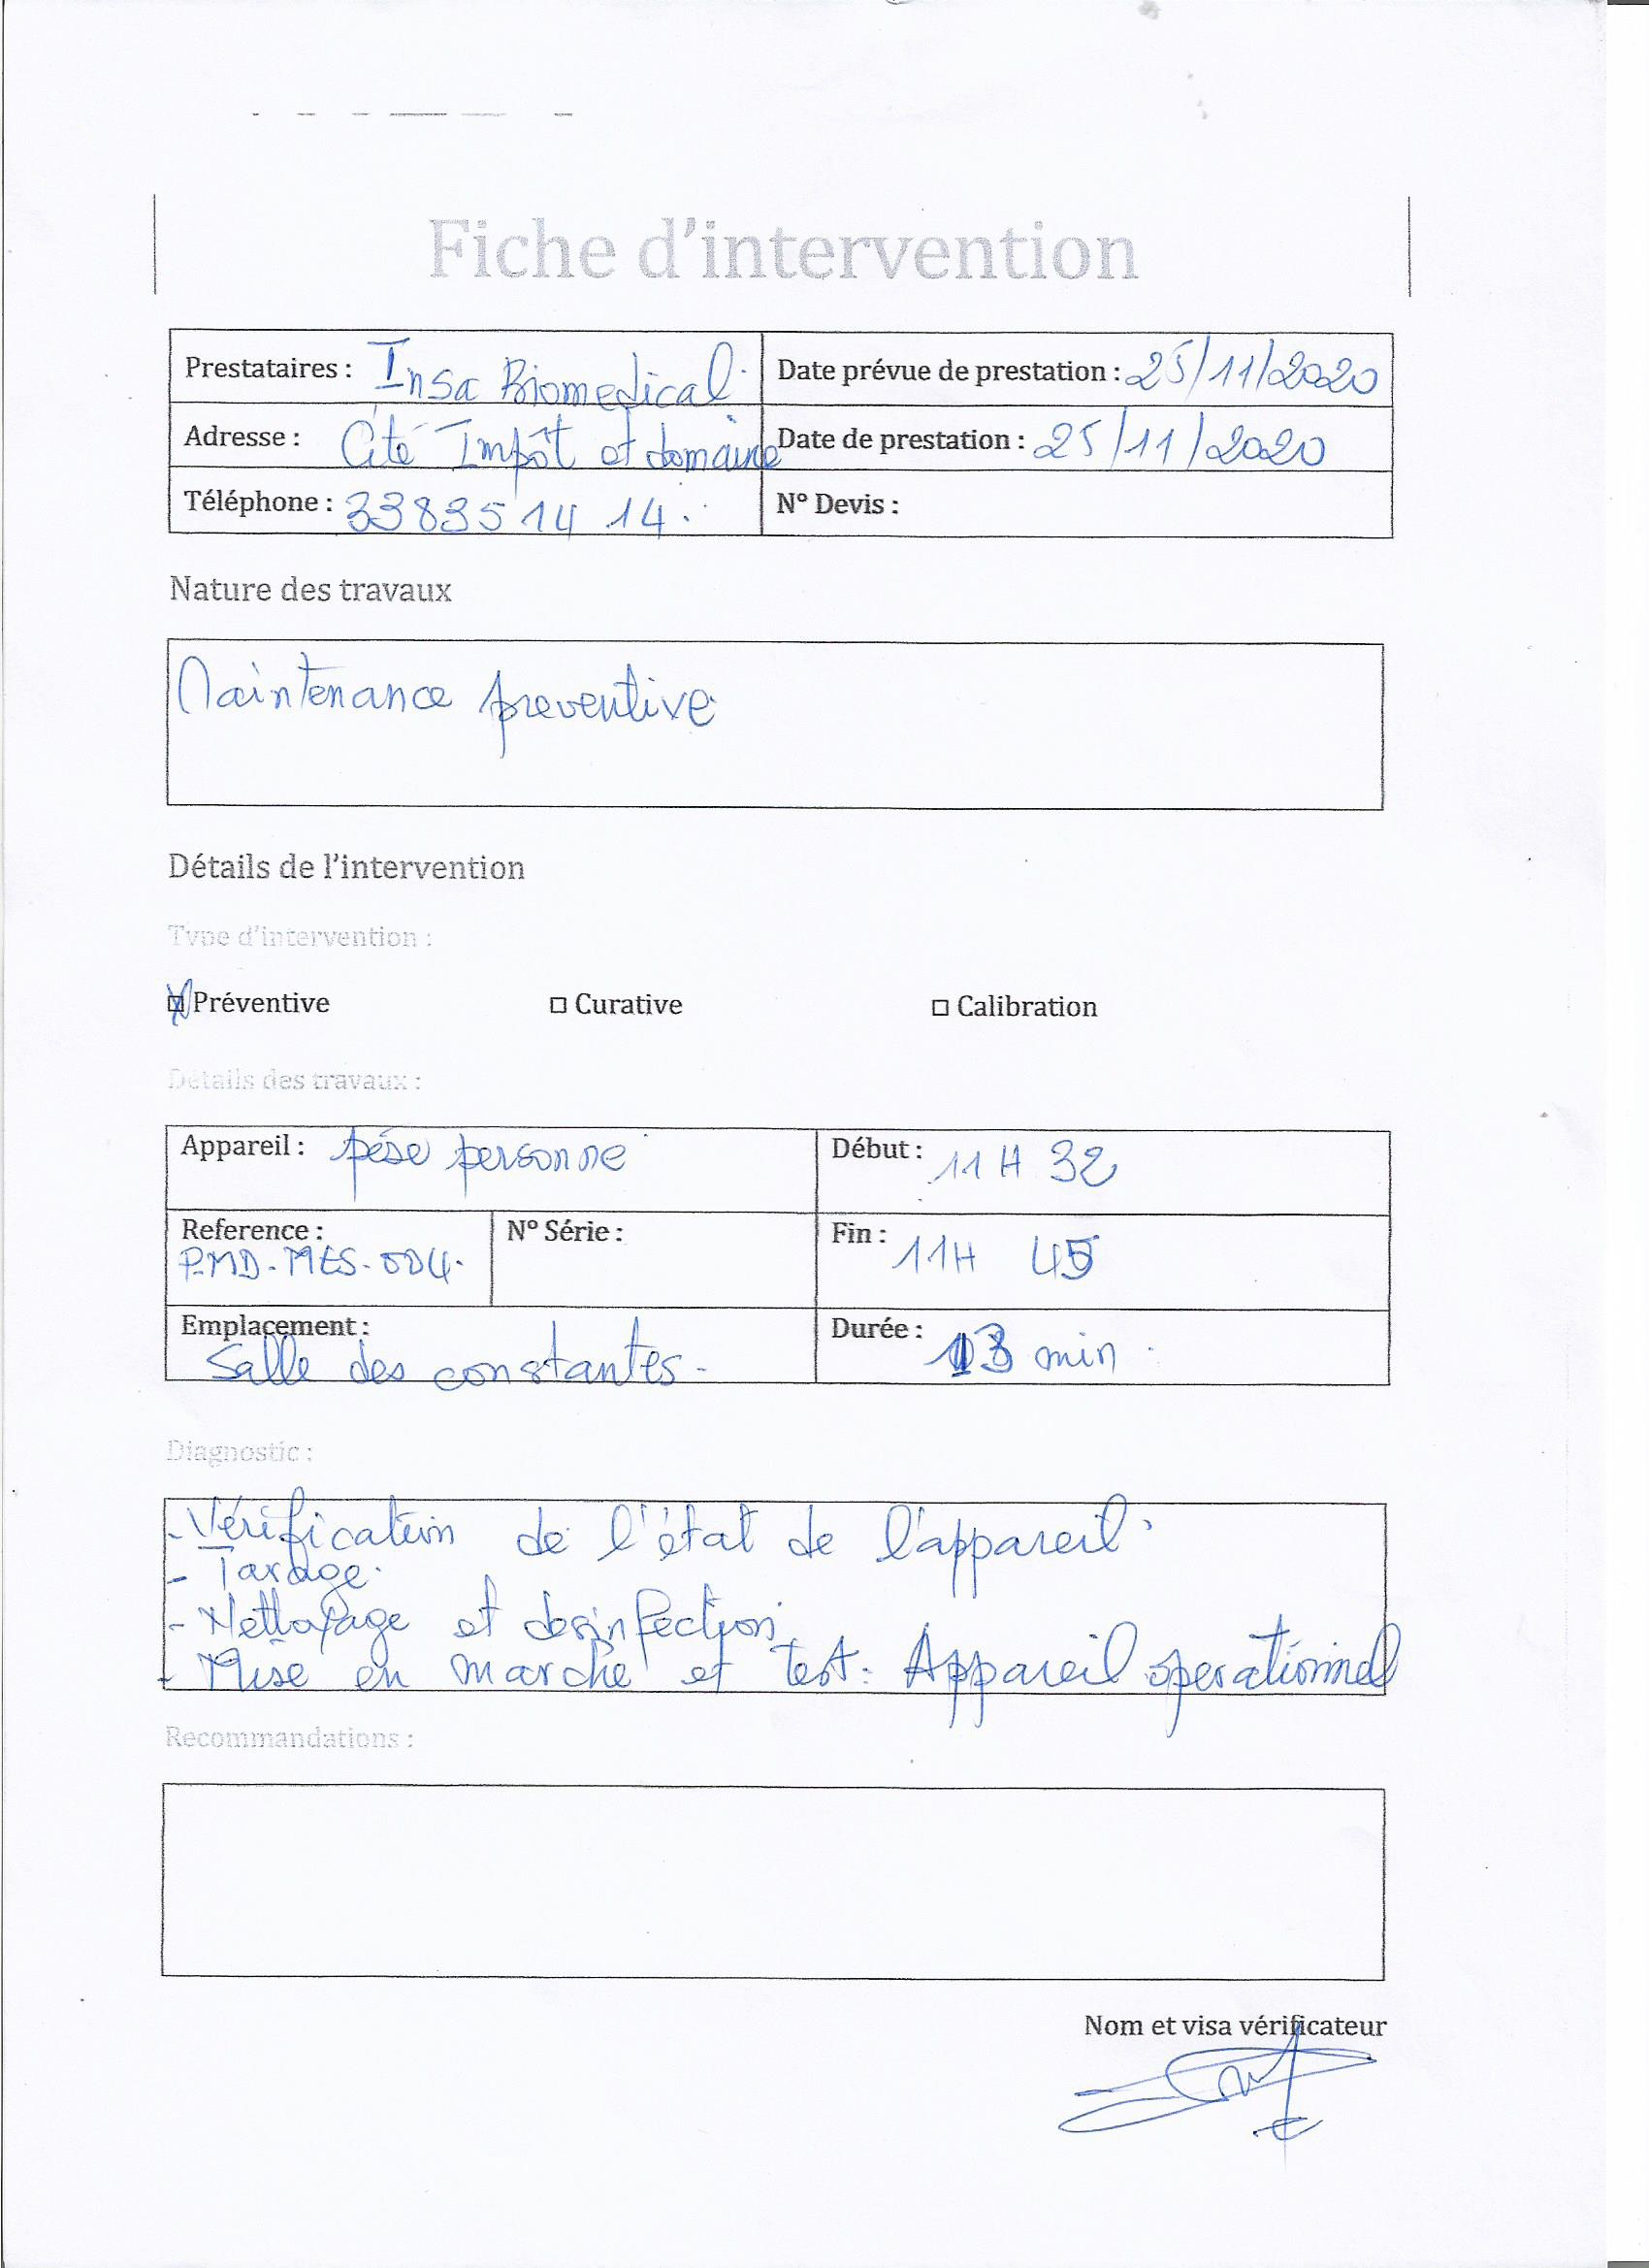 Fiche d'intervention
Prestataires : Insa Biomedical. Date prévue de prestation : 25/11/2020
Adresse : Cité Impôt et domaine Date de prestation : 25/11/2020
Téléphone : 33835 14 14. N° Devis :
Nature des travaux
Maintenance preventive
Détails de l'intervention
Type d'intervention :
Préventive Curative Calibration
Détails des travaux :
Appareil : pése personne Début : 11 H 32
Reference : N° Série : Fin : 11H 45
PMD-MES-004.
Emplacement : Durée : 13 min.
Salle des constantes-
Diagnostic :
- Vérification de l'état de l'appareil.
- Tarage.
- Nettoyage et desinfection
- Mise en marche et test. Appareil operationnel
Recommandations :
Nom et visa vérificateur